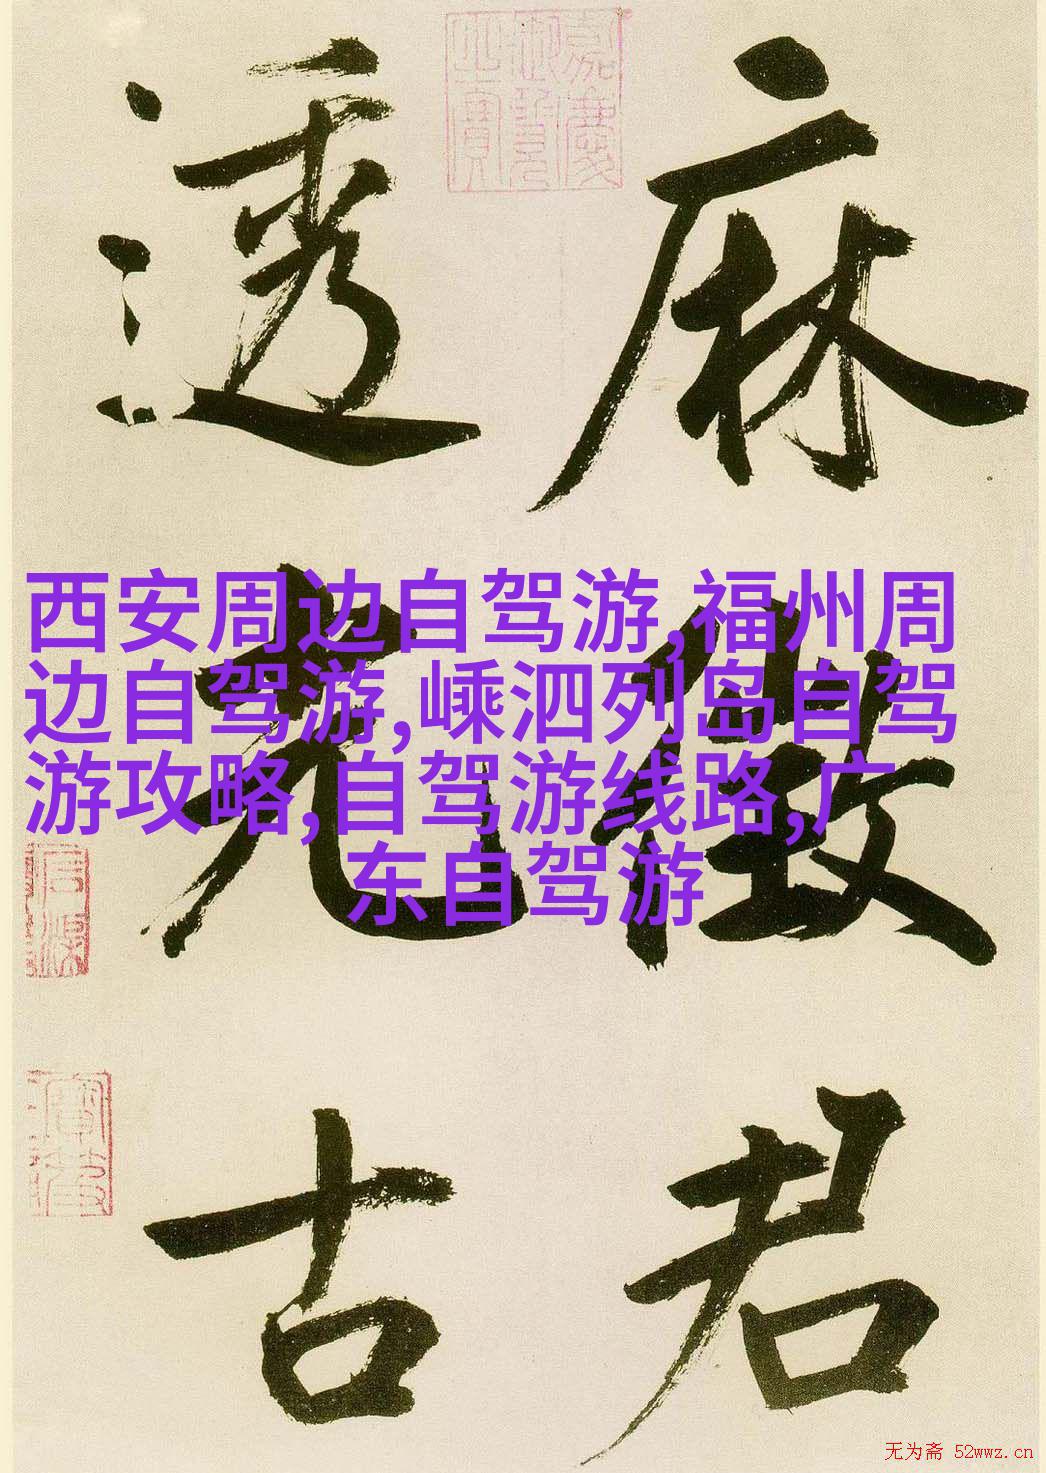 麻
徴
君
透
光
古
西安周边自驾游,福州周
边自驾游,嵊泗列岛自驾
游攻略,自驾游线路,广
东自驾游
无为斋 52wwz.cn